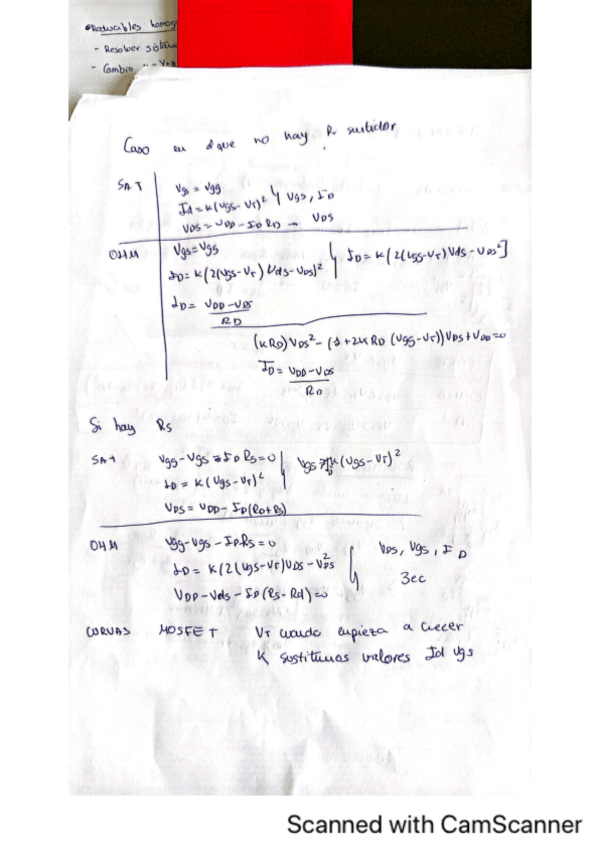 Reducibles homog
- Resolver sistem
- Cambio
Caso en el que no hay R surtidor
SAT
Vgs = Vgg
Id = K(Vgs - VT)² } Vgs, ID
VDS = VDD - ID RD → VDS
OHM
Vgs = Vgs
ID = K(2(Vgs - VT) Vds - VDS)² } ID = K(2(Vgs - VT) Vds - VDS²]
ID = VDD - VDS / RD
(K RD) VDS² - (1 + 2K RD (Vgg - VT)) VDS + VDD = 0
ID = VDD - VDS / RD
Si hay Rs
SAT
Vgg - Vgs = ID Rs = 0
ID = K(Vgs - VT)²
VDS = VDD - ID(RD + Rs)
OHM
Vgg - Vgs - ID Rs = 0
ID = K(2(Vgs - VT) VDS - VDS²
VDD - Vds - ID(Rs - Rd) = 0
VDS, Vgs, ID
3ec
CURVAS MOSFET VT cuando empieza a crecer
K sustituimos valores Id Vgs
Scanned with CamScanner